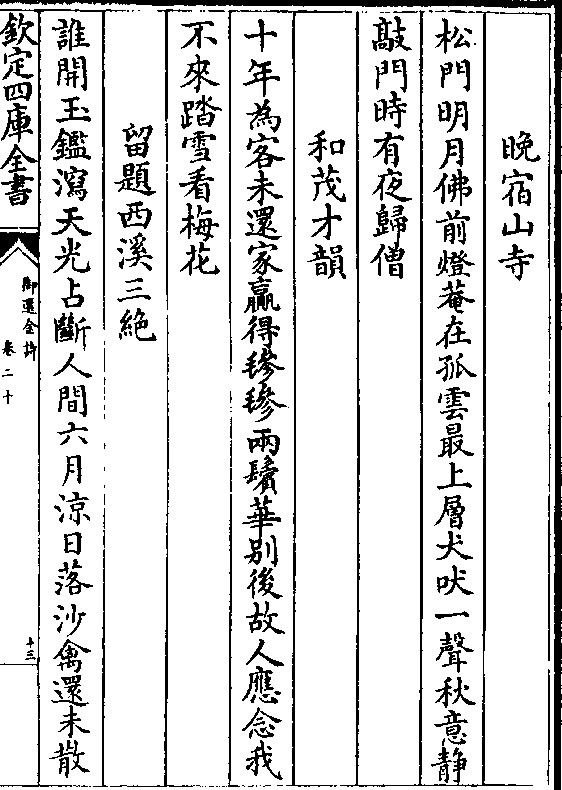 晚宿山寺
松門明月佛前燈菴在孤雲最上層犬吠一聲秋意静
敲門時有夜歸僧
和茂才韻
十年為客未還家贏得毿毿兩鬢華别後故人應念我
不來踏雪看梅花
留題西溪三絶
誰開玉鑑瀉天光占斷人間六月涼日落沙禽還未散
欽定四庫全書
御選金詩
卷二十
十三